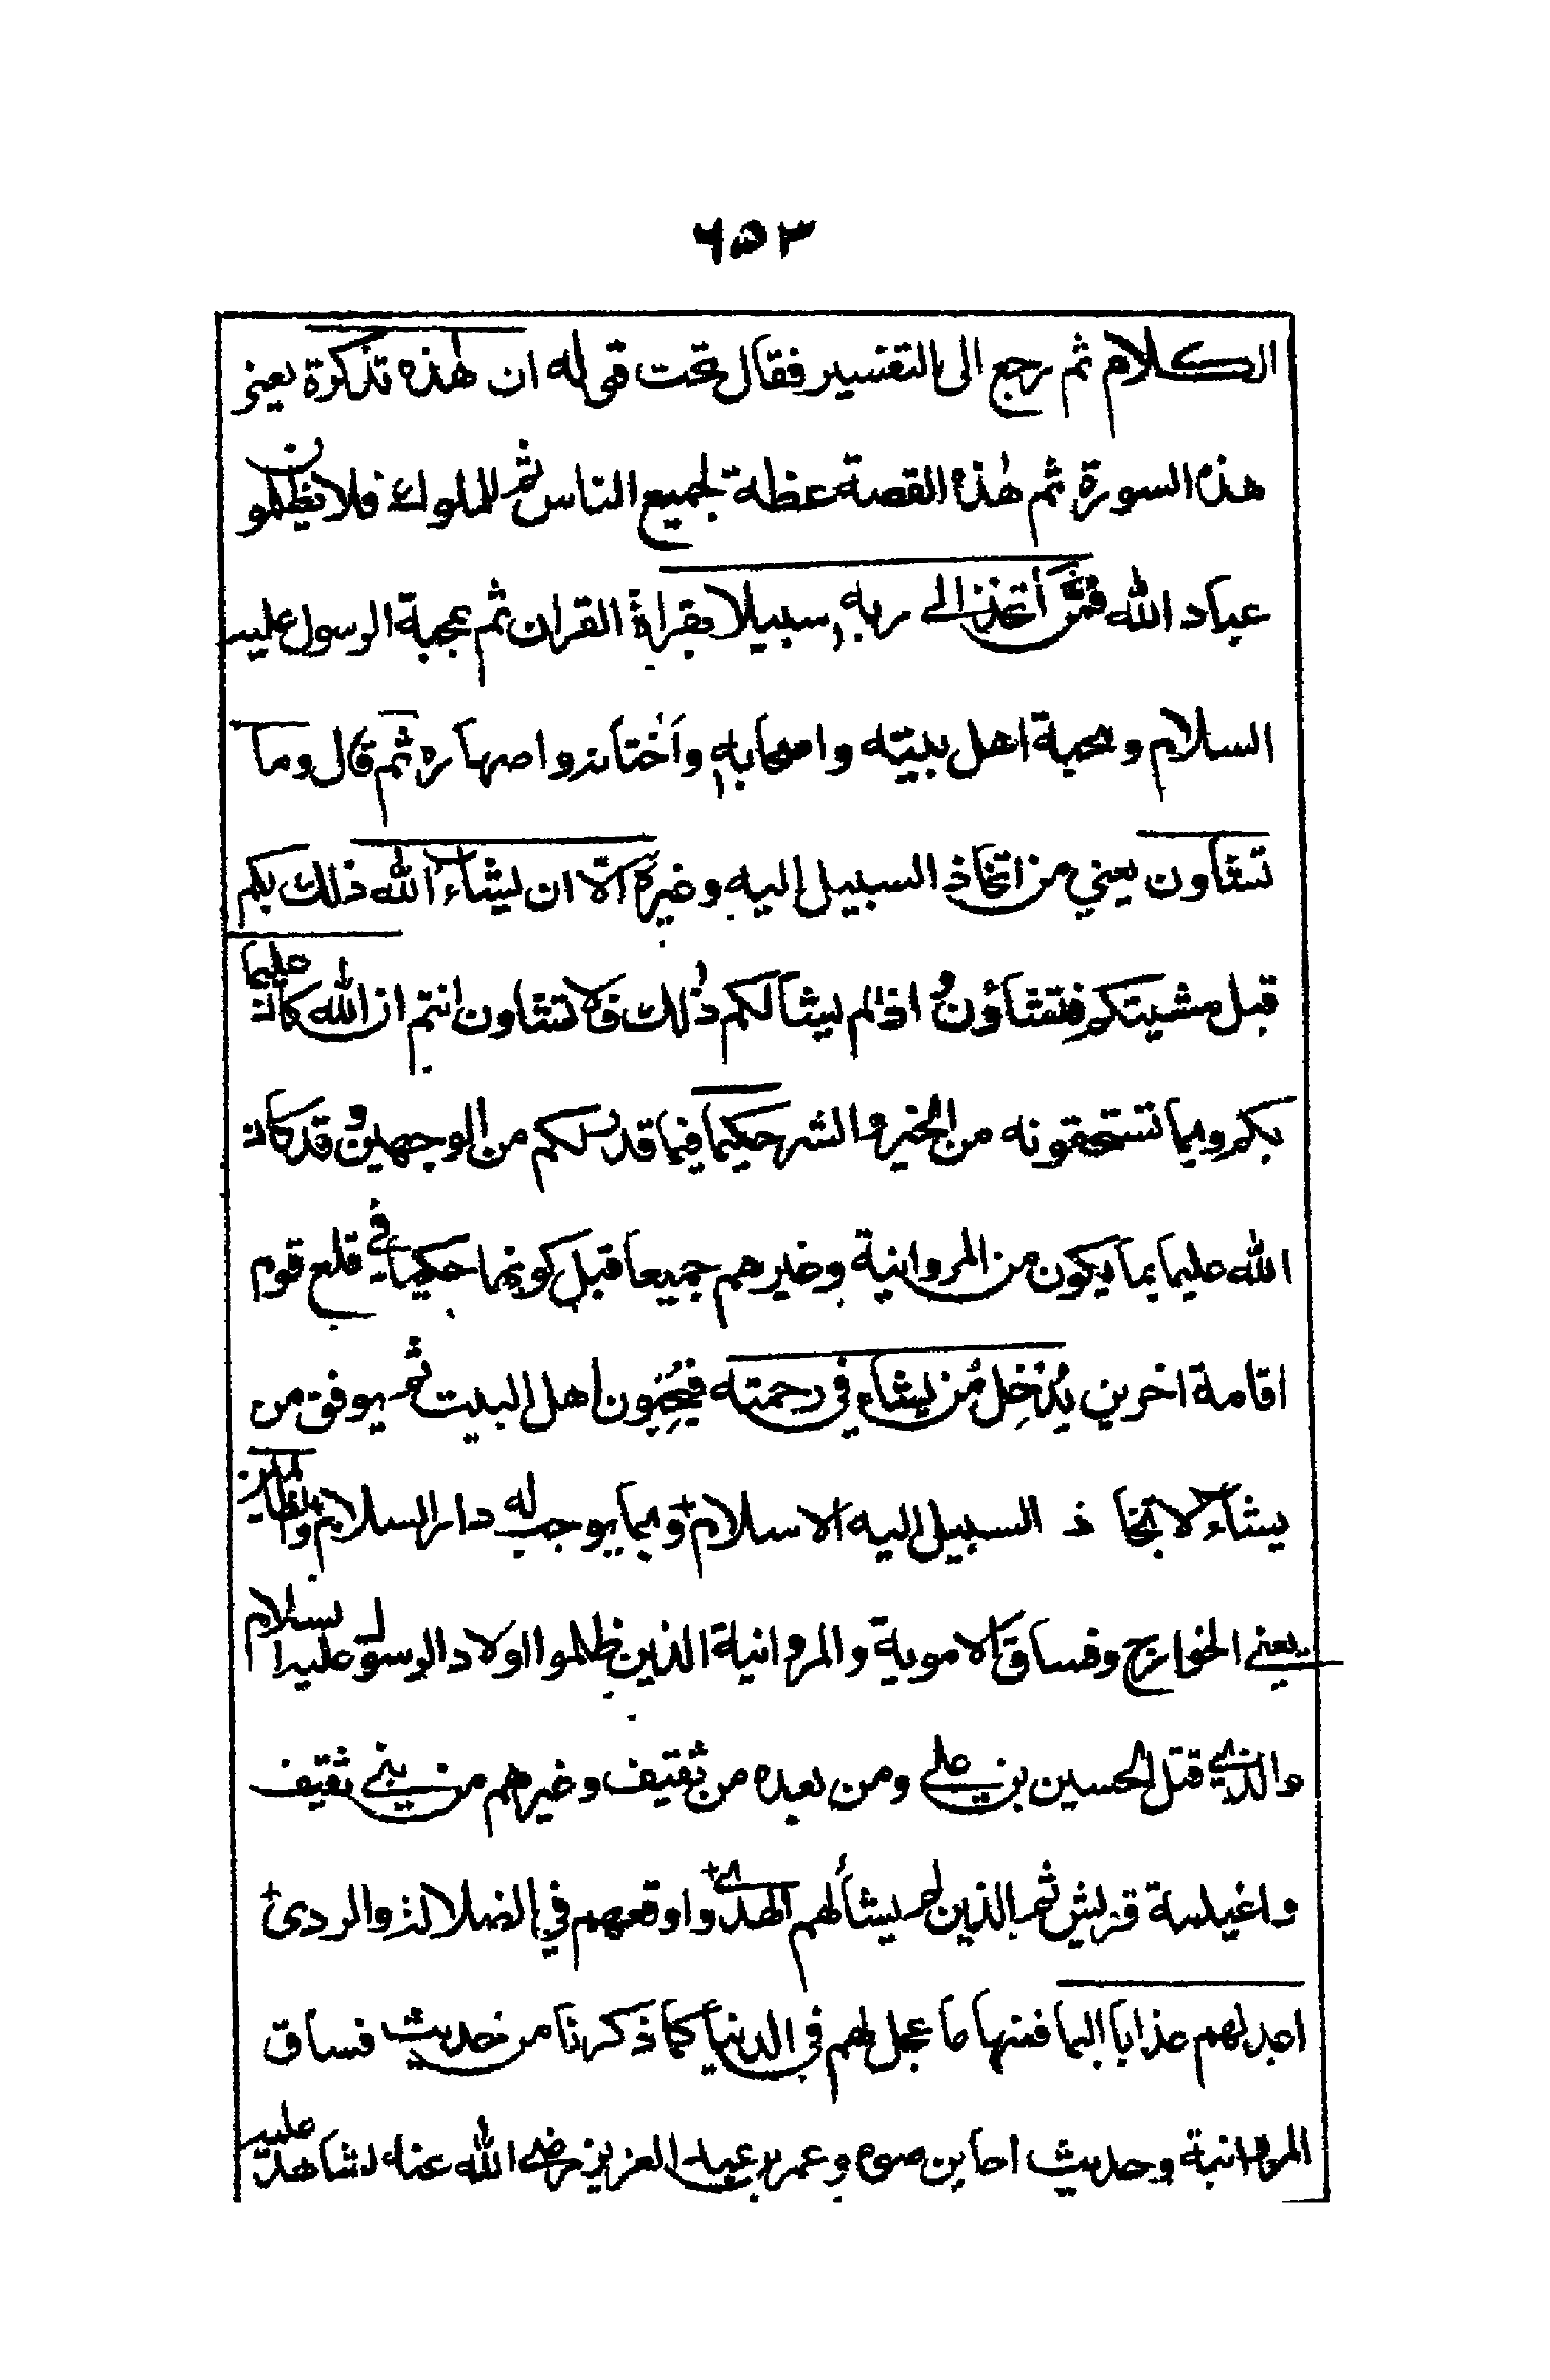 ٦٥٣
الكلام ثم رجع الى التفسير فقال تحت قوله ان هذه تذكرة يعني
هذه السورة ثم هذه القصة عظة لجميع الناس ثم للملوك فلا يظلمون
عباد الله فمن أتخذ الى ربه سبيلا بقراءة القران ثم محبة الرسول عليه
السلام ومحبة اهل بيته واصحابه وأختانه واصهاره ثم قال وما
تشاون يعني من اتخاذ السبيل اليه وغيره الّا ان يشاء الله ذلك بكم
قبل مشيتكم فتشاؤن اذا لم يشا لكم ذلك فلا تشاون انتم ان الله كان عليما
بكم وبما تستحقونه من الخير والشر حكيما فيما قدر لكم من الوجهين وقد كان
الله عليما بما يكون من المروانية وغيرهم جميعا قبل كونهما حكيما في قلع قوم
اقامة اخرين يُدخِل مُن يشاء في رحمته فيحبون اهل البيت ثم يوفق من
يشاء لاتخاذ السبيل اليه الاسلام وبما يوجب له دار السلام والظالمين
يعني الخوارج وفساق الاموية والمروانية الذين ظلموا اولاد الرسول عليه السلام
والذي قتل الحسين بن علي ومن بعده من ثقيف وغيرهم من بني ثقيف
واغيلمة قريش ثم الذين لم يشأ لهم الهدى واوقعهم في الضلالة والردى
اعد لهم عذابا اليما فمنها ما عجل لهم في الدنيا كما ذكرنا من حديث فساق
المروانية وحديث وعمر بن عبد العزيز رضي الله عنه لشاهد عليه